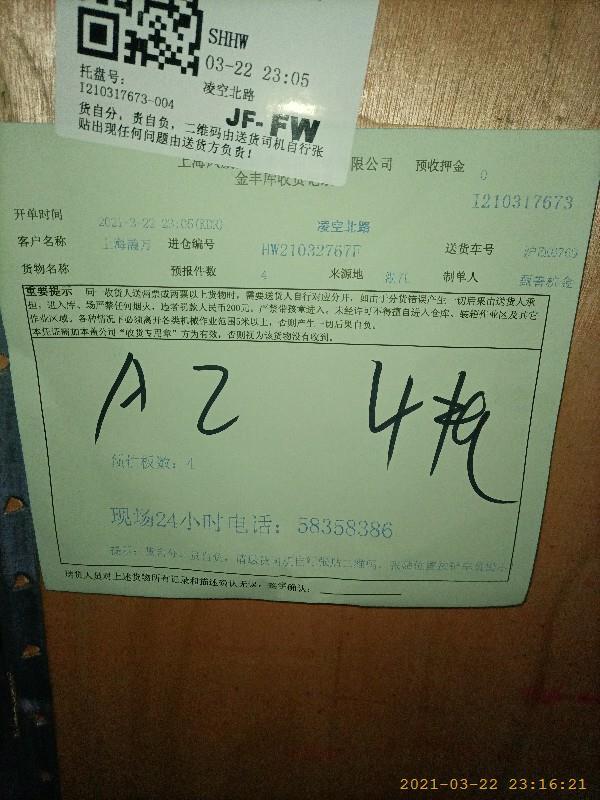 SHHW
03-22 23:05
托盘号:
I210317673-004
凌空北路
JF-FW
货自分，责自负，二维码由送货司机自行张
贴出现任何问题由送货方负责！
限公司 预收押金 0
金丰库收货记
I210317673
开单时间 2021-3-22 23:05 凌空北路
客户名称 上海 进仓编号 HW21032767F 送货车号
货物名称 预报件数 4 来源地 制单人
重要提示 同一收货人送两票或两票以上货物时，需要送货人自行对应分开，如由于分货错误产生一切后果由送货人承
担，进入库、场严禁任何烟火，违者罚款人民币200元，严禁带孩童进入，未经许可不得擅自进入仓库、装箱作业区及其它
作业区域，各种情况下必须离开各类机械作业范围5米以上，否则产生一切后果自负。
本凭证需加本盖公司“收货专用章”方为有效，否则视为该货物没有收到。
A2 4
板数：4
现场24小时电话：58358386
提示：货自分，责自负，请送货司机自行张贴二维码，
送货人员对上述货物所有记录和描述确认无误，签字确认：
2021-03-22 23:16:21